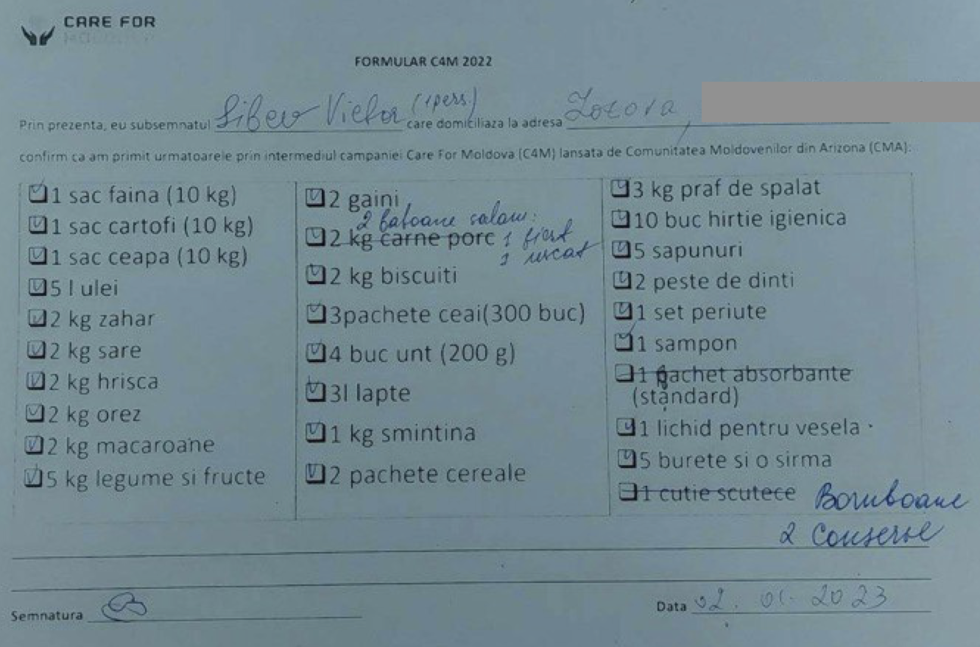 CARE FOR
MOLDOVA
FORMULAR C4M 2022
Prin prezenta, eu subsemnatul Victor (1pers.) care domiciliaza la adresa Zozova,
confirm ca am primit urmatoarele prin intermediul campaniei Care For Moldova (C4M) lansata de Comunitatea Moldovenilor din Arizona (CMA):
1 sac faina (10 kg)
1 sac cartofi (10 kg)
1 sac ceapa (10 kg)
5 l ulei
2 kg zahar
2 kg sare
2 kg hrisca
2 kg orez
2 kg macaroane
5 kg legume si fructe
2 gaini
2 batoane salam:
2 kg carne porc 1 fiert
1 uscat
2 kg biscuiti
3pachete ceai(300 buc)
4 buc unt (200 g)
3l lapte
1 kg smintina
2 pachete cereale
3 kg praf de spalat
10 buc hirtie igienica
5 sapunuri
2 peste de dinti
1 set periute
1 sampon
1 pachet absorbante
(standard)
1 lichid pentru vesela
5 burete si o sirma
1 cutie scutece Bomboane
2 Conserve
Semnatura
Data 02. 01. 2023